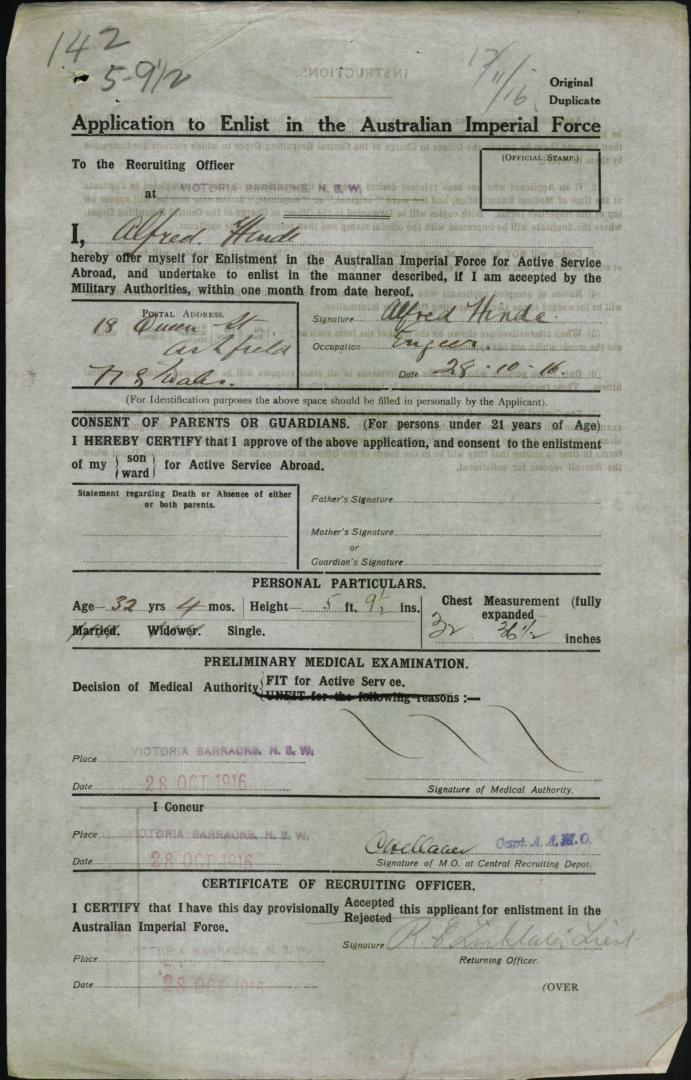 142
5-9 1/2
17/11/16
Original
Duplicate
Application to Enlist in the Australian Imperial Force
To the Recruiting Officer
(OFFICIAL STAMP.)
at VICTORIA BARRACKS, N. S. W.
I, Alfred Hinde
hereby offer myself for Enlistment in the Australian Imperial Force for Active Service
Abroad, and undertake to enlist in the manner described, if I am accepted by the
Military Authorities, within one month from date hereof.
POSTAL ADDRESS.
18 Queen St
Ashfield
N S Wales.
Signature Alfred Hinde.
Occupation
Date 28-10-16.
(For Identification purposes the above space should be filled in personally by the Applicant).
CONSENT OF PARENTS OR GUARDIANS. (For persons under 21 years of Age)
I HEREBY CERTIFY that I approve of the above application, and consent to the enlistment
of my { son ward } for Active Service Abroad.
Statement regarding Death or Absence of either
or both parents.
Father's Signature
Mother's Signature
or
Guardian's Signature
PERSONAL PARTICULARS.
Age— 32 yrs 4 mos. Height— 5 ft. 9 1/2 ins. Chest Measurement (fully
expanded—
32 36 1/2 inches
Married. Widower. Single.
PRELIMINARY MEDICAL EXAMINATION.
Decision of Medical Authority { FIT for Active Serv ce.
UNFIT for the following reasons :—
Place VICTORIA BARRACKS, N. S. W.
Date 28 OCT 1916
Signature of Medical Authority.
I Concur
Place VICTORIA BARRACKS, N. S. W.
Date 28 OCT 1916
Capt A. A. M. C.
Signature of M.O. at Central Recruiting Depot.
CERTIFICATE OF RECRUITING OFFICER.
I CERTIFY that I have this day provisionally Accepted Rejected this applicant for enlistment in the
Australian Imperial Force.
Signature R Lieut
Returning Officer.
Place VICTORIA BARRACKS, N. S. W.
Date 28 OCT 1916
(OVER